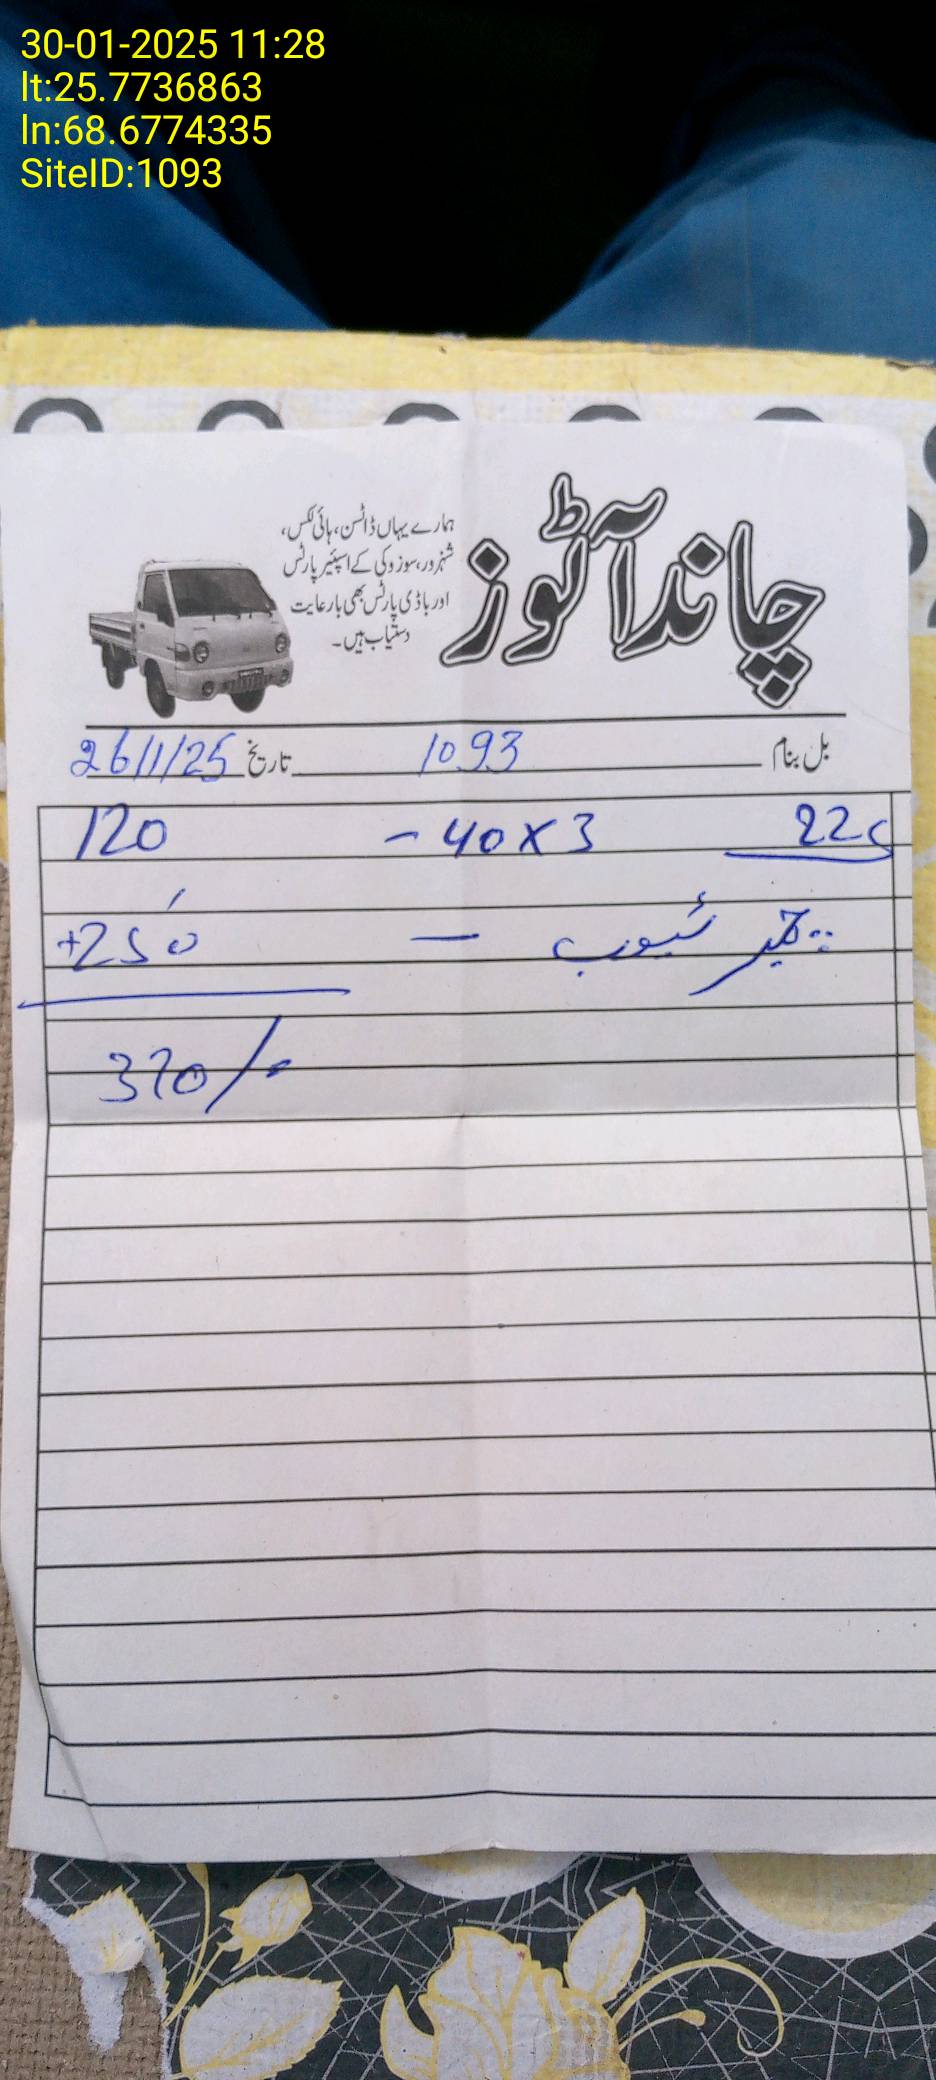 30-01-2025 11:28
lt:25.7736863
ln:68.6774335
SiteID:1093
چاندآٹوز
ہمارے یہاں ڈاٹسن، ہائی لکس،
شہزور، سوزوکی کے اسپئیر پارٹس
اور باڈی پارٹس بھی بارعایت
دستیاب ہیں۔
بل بنام 1093 تاریخ 26/1/25
40 x 3 - 120
ٹیوب — +250
370/-